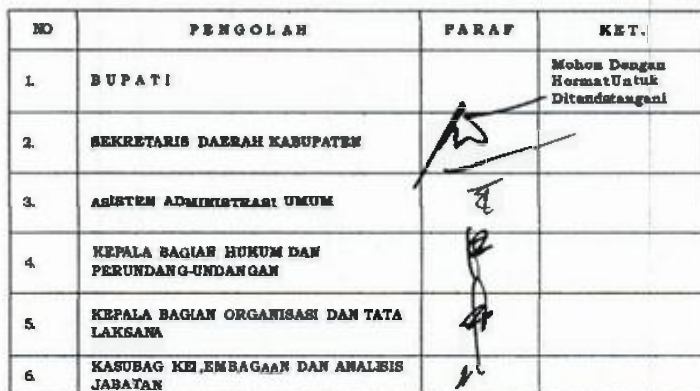 NO PENGOLAH PARAF KET.
1. BUPATI Mohon Dengan
Hormat Untuk
Ditandatangani
2. SEKRETARIS DAERAH KABUPATEN
3. ASISTEN ADMINISTRASI UMUM
4. KEPALA BAGIAN HUKUM DAN
PERUNDANG-UNDANGAN
5. KEPALA BAGIAN ORGANISASI DAN TATA
LAKSANA
6. KASUBAG KELEMBAGAAN DAN ANALISIS
JABATAN